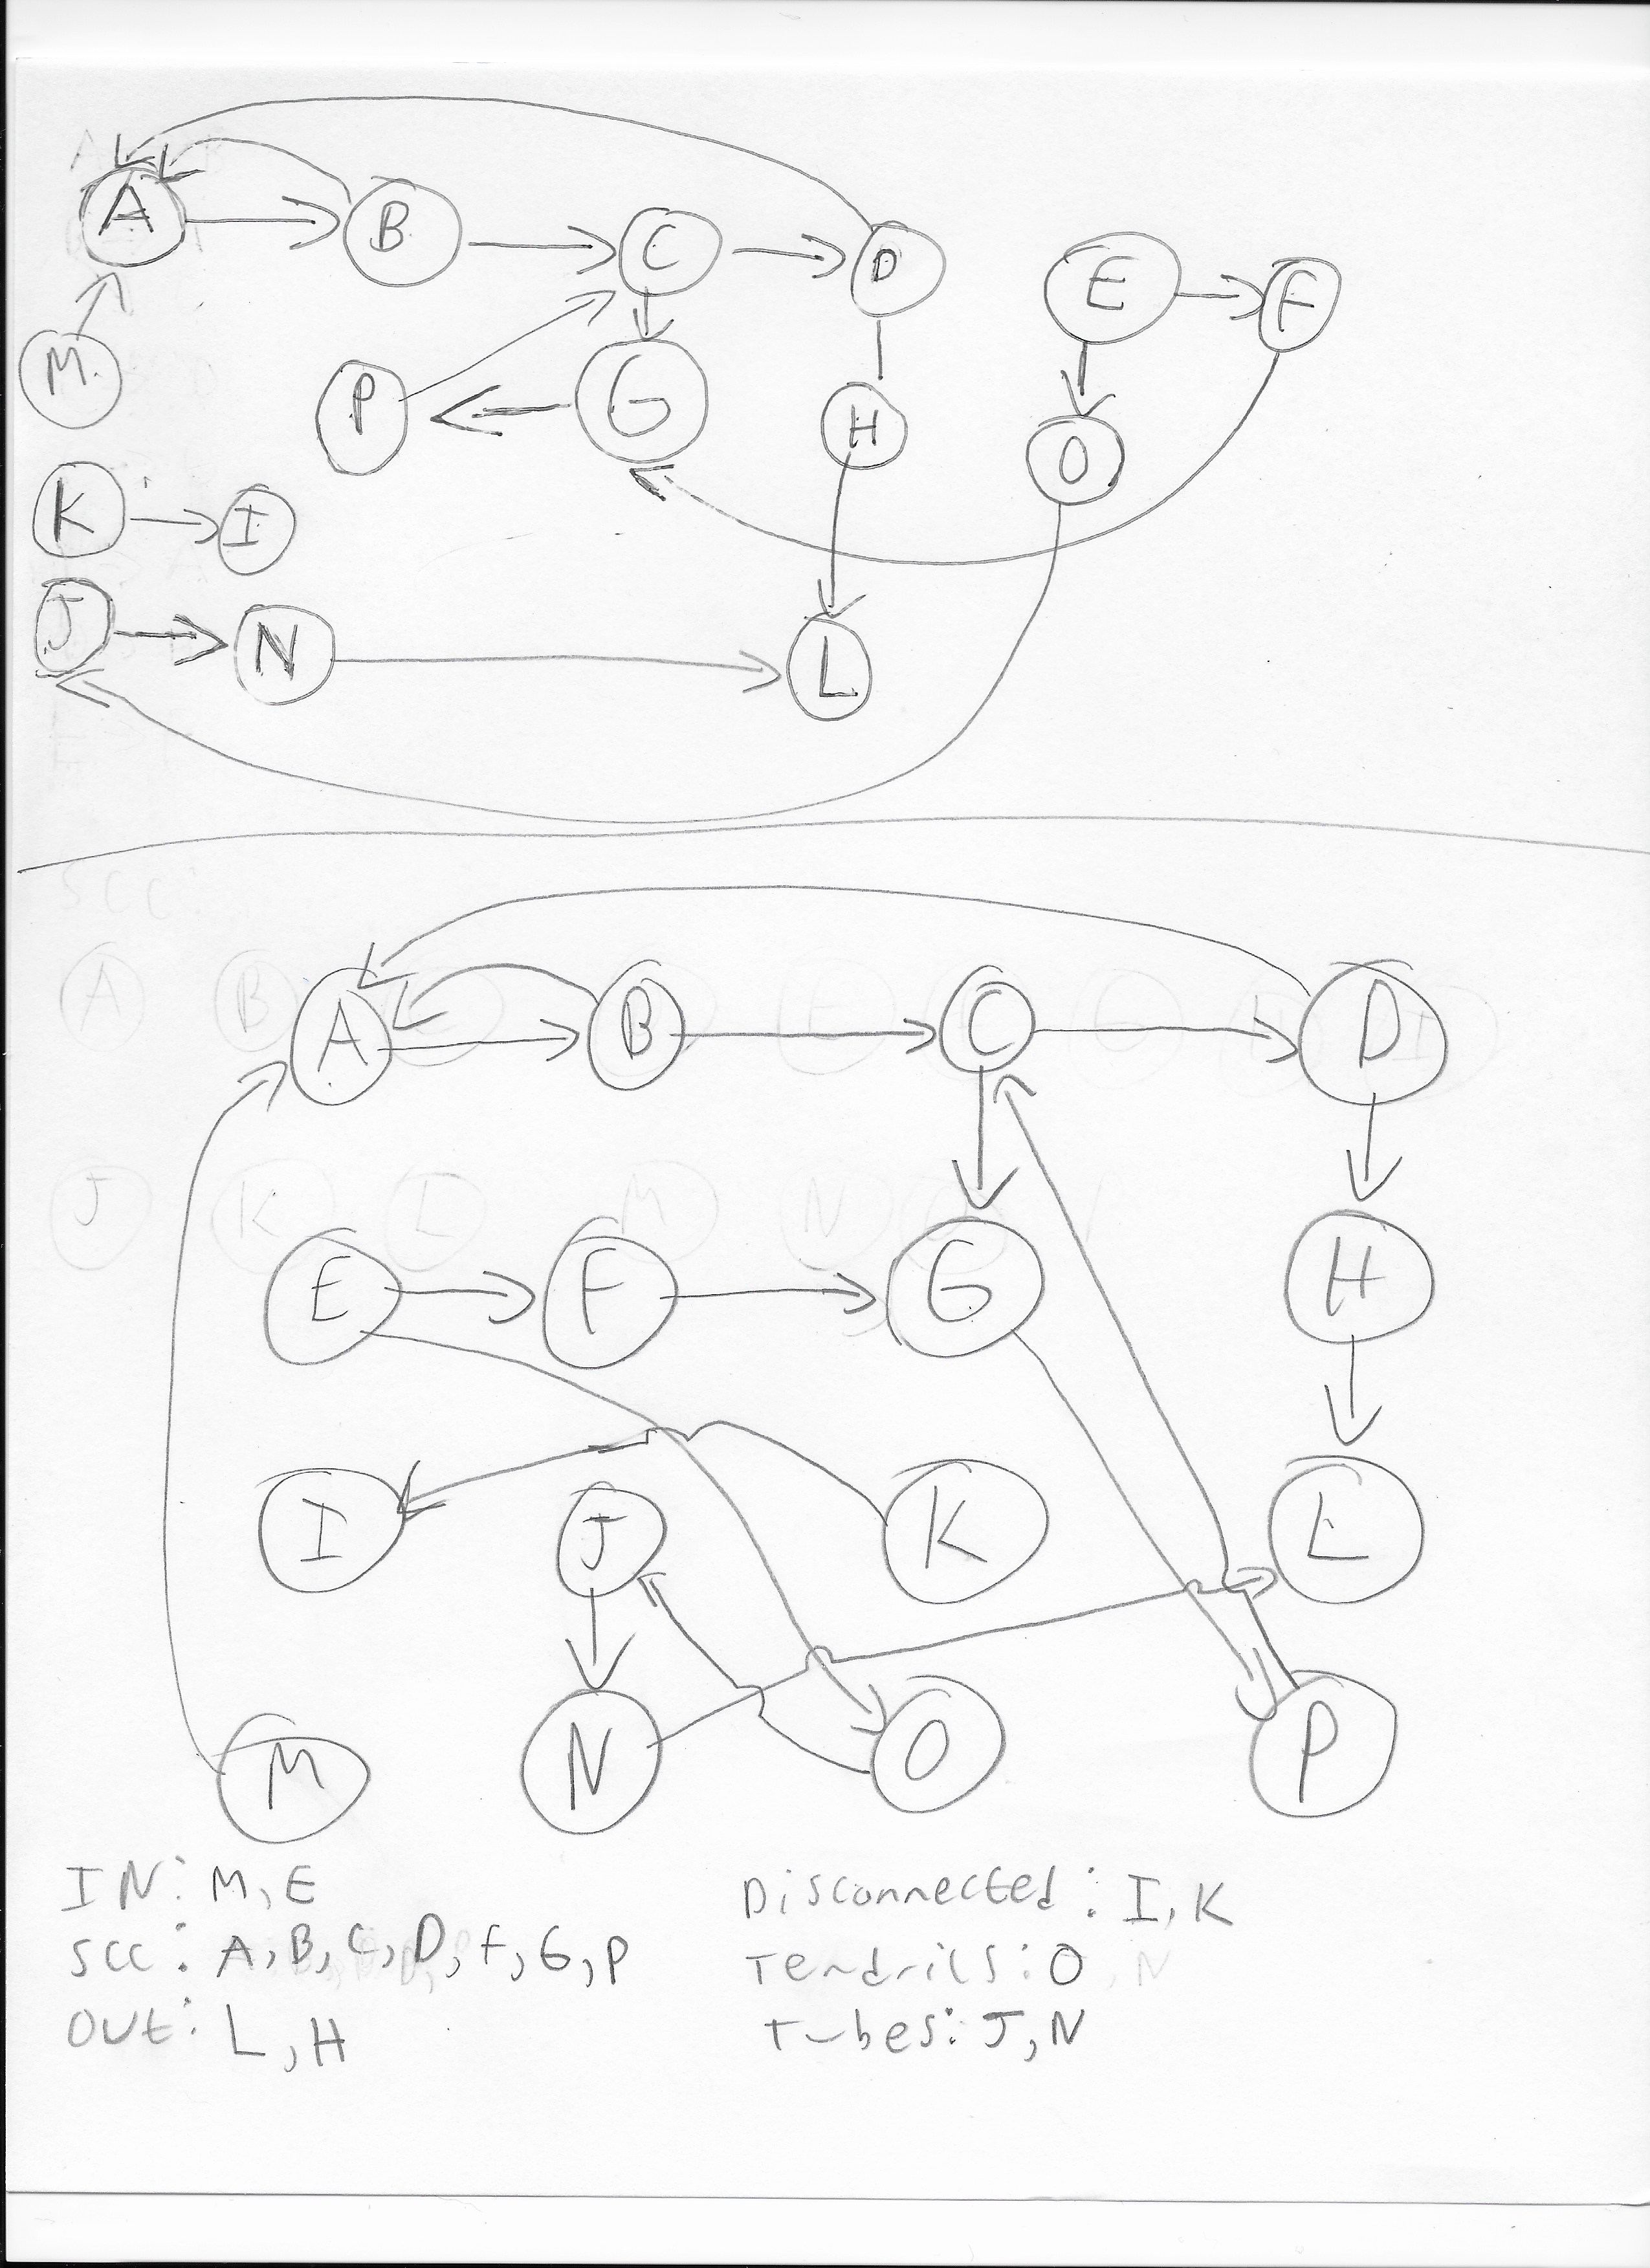 A B C D E F
M P G H O
K I
J N L
A B C D
E F G H
I J K L
M N O P
IN: M, E
SCC: A, B, C, D, F, G, P
OUt: L, H
Disconnected: I, K
Tendrils: O
Tubes: J, N
SCC:
A B
J K L M N